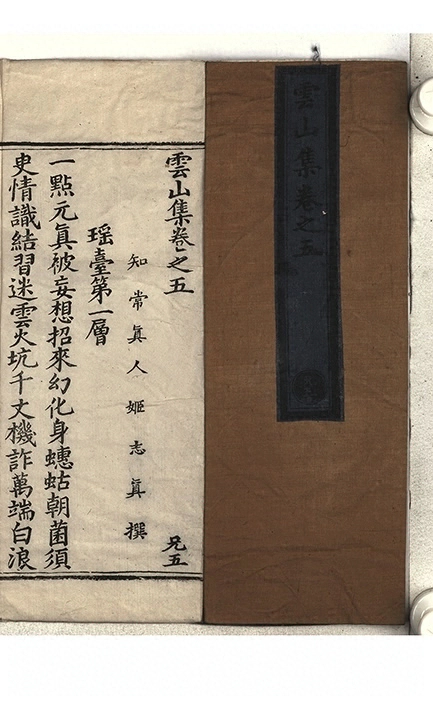 雲山集卷之五
雲山集卷之五
兄五
知常真人姬志真撰
瑶臺第一層
一點元真被妄想招來幻化身蟪蛄朝菌須
史情識結習迷雲火坑千丈機詐萬端白浪